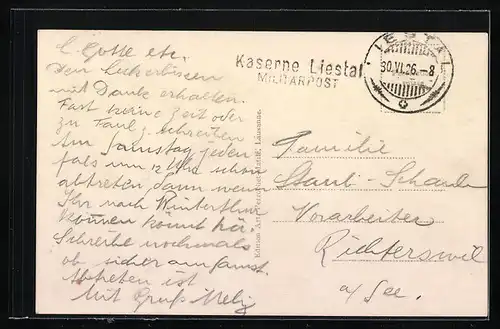 L. Gotte etc.
Den Leckerbissen
mit Dank erhalten.
Fast keine Zeit oder
zu Faul z. schreiben
Am Samstag jeden
falls um 12 Uhr schon
abtreten dann wenn
Ihr nach Winterthur
können könnt
Schreibe nochmals
ob sicher am Samst.
Abtreten ist
Mit Gruß
Kaserne Liestal
MILITÄRPOST
LIESTAL
30.VI.26.-8
Familie
Staub-Schaub
Vorarbeiter
Richterswil
a/See.
Lausanne.